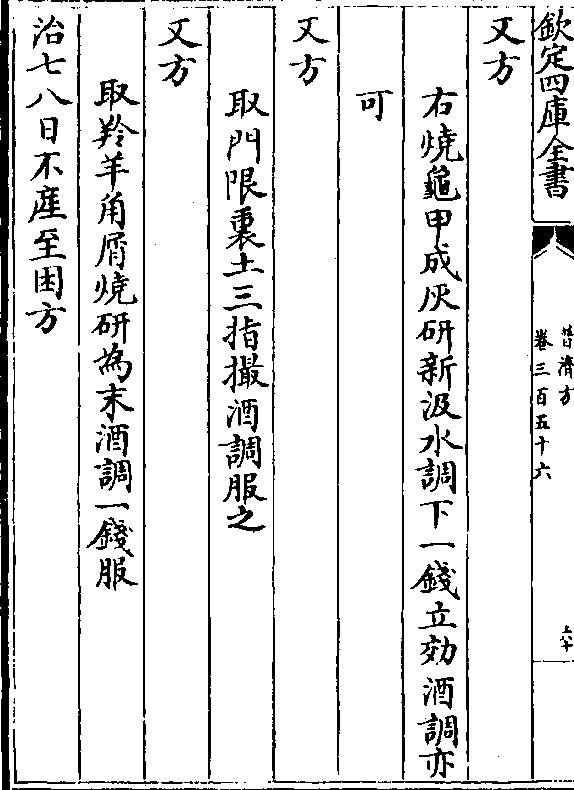 欽定四庫全書
普濟方
卷三百五十六
又方
右燒龜甲成灰研新汲水調下一錢立效酒調亦
可
又方
取門限裏土三指撮酒調服之
又方
取羚羊角屑燒研為末酒調一錢服
治七八日不産至困方